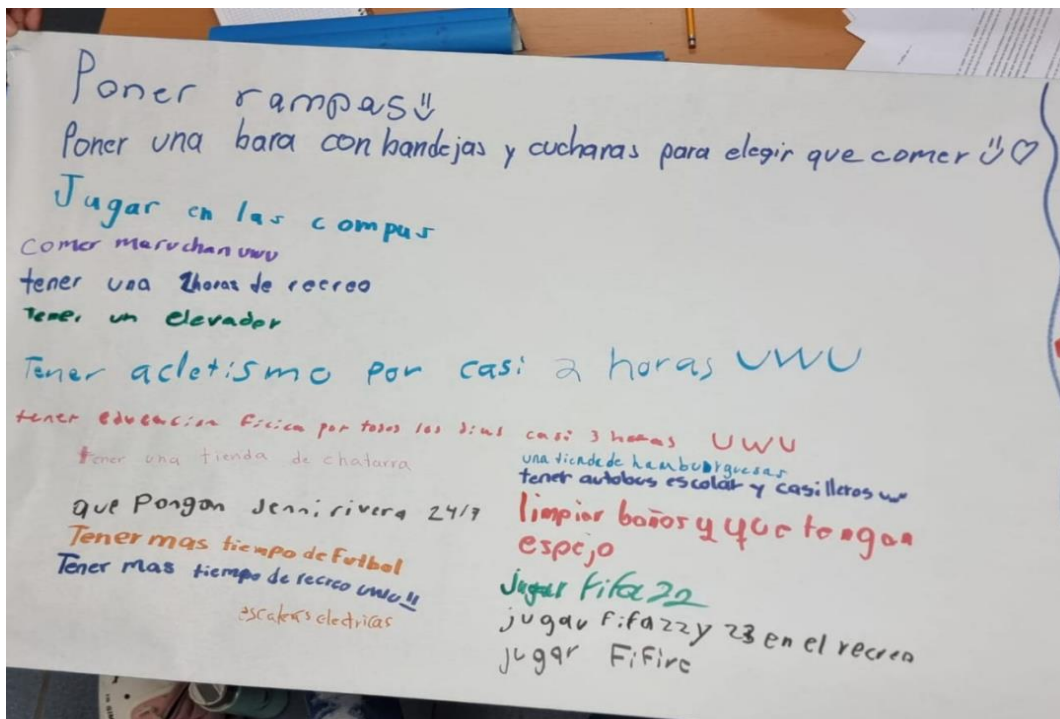 Poner rampas
Poner una bara con bandejas y cucharas para elegir que comer
Jugar en las compus
comer maruchan uwu
tener una 2horas de recreo
Tener un elevador
Tener acletismo por casi 2 horas UWU
tener educacion ficica por todos los dias casi 3 horas UWU
tener una tienda de chatarra
que Pongan Jenni rivera 24/7
Tener mas tiempo de Futbol
Tener mas tiempo de recreo uwu!!
escaleras electricas
una tienda de hamburguesas
tener autobus escolar y casilleros uw
limpiar baños y que tengan
espejo
jugar Fifa 22
jugar Fifa 22 y 23 en el recreo
jugar FiFire